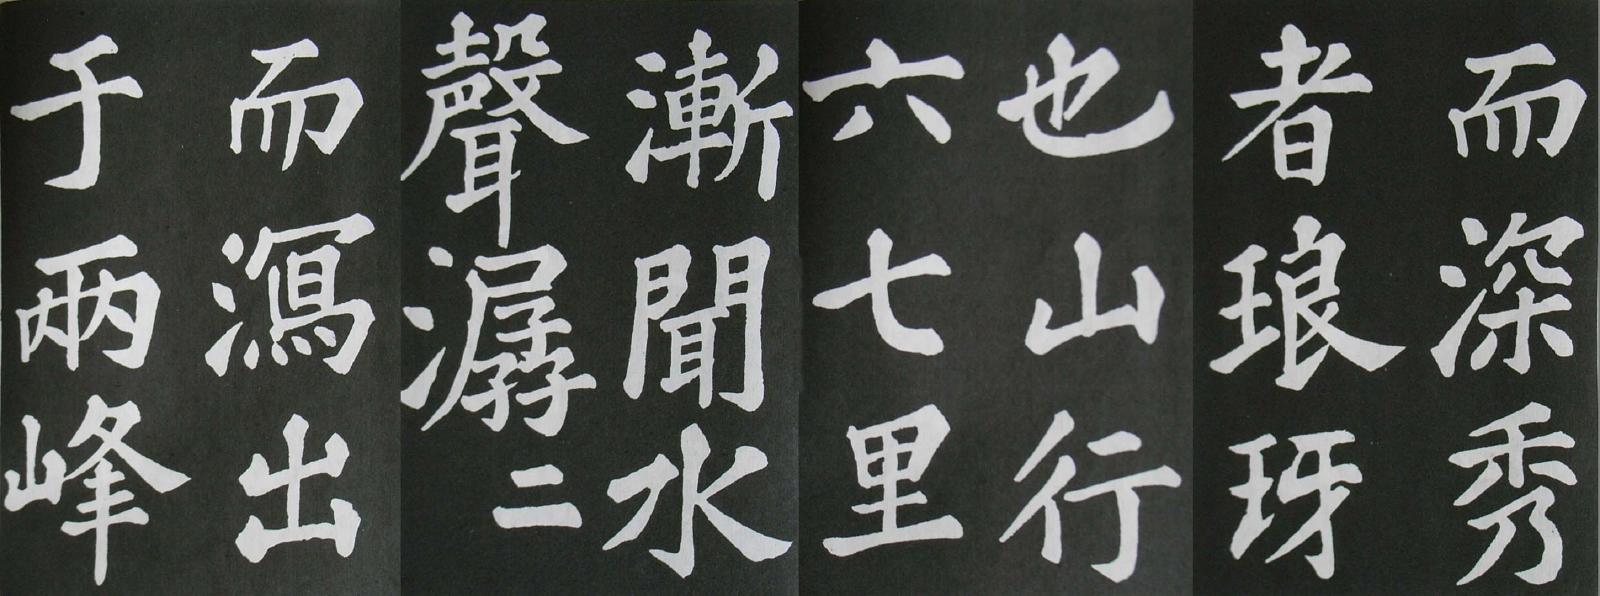 而深秀
者琅玡
也山行
六七里
漸聞水
聲潺二
而瀉出
于兩峰